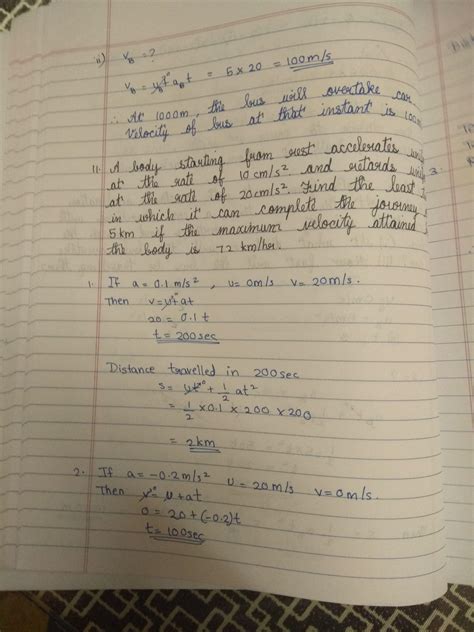 ii) V_B = ?
V_B = u_B^0 + a_B t = 5 × 20 = 100m/s
∴ At 1000m, the bus will overtake car
Velocity of bus at that instant is 100m
11. A body starting from rest accelerates
at the rate of 10 cm/s² and retards
at the rate of 20cm/s². Find the least
in which it can complete the journey
5 km if the maximum velocity attained
the body is 72 km/hr.
1. If a = 0.1 m/s², u = 0m/s v = 20m/s.
Then v = u^0 + at
20 = 0.1 t
t = 200sec
Distance travelled in 200sec
s = ut^0 + 1/2 at²
= 1/2 × 0.1 × 200 × 200
= 2km
2. If a = -0.2m/s² u = 20m/s v = 0m/s.
Then v^0 = u + at
0 = 20 + (-0.2)t
t = 100sec